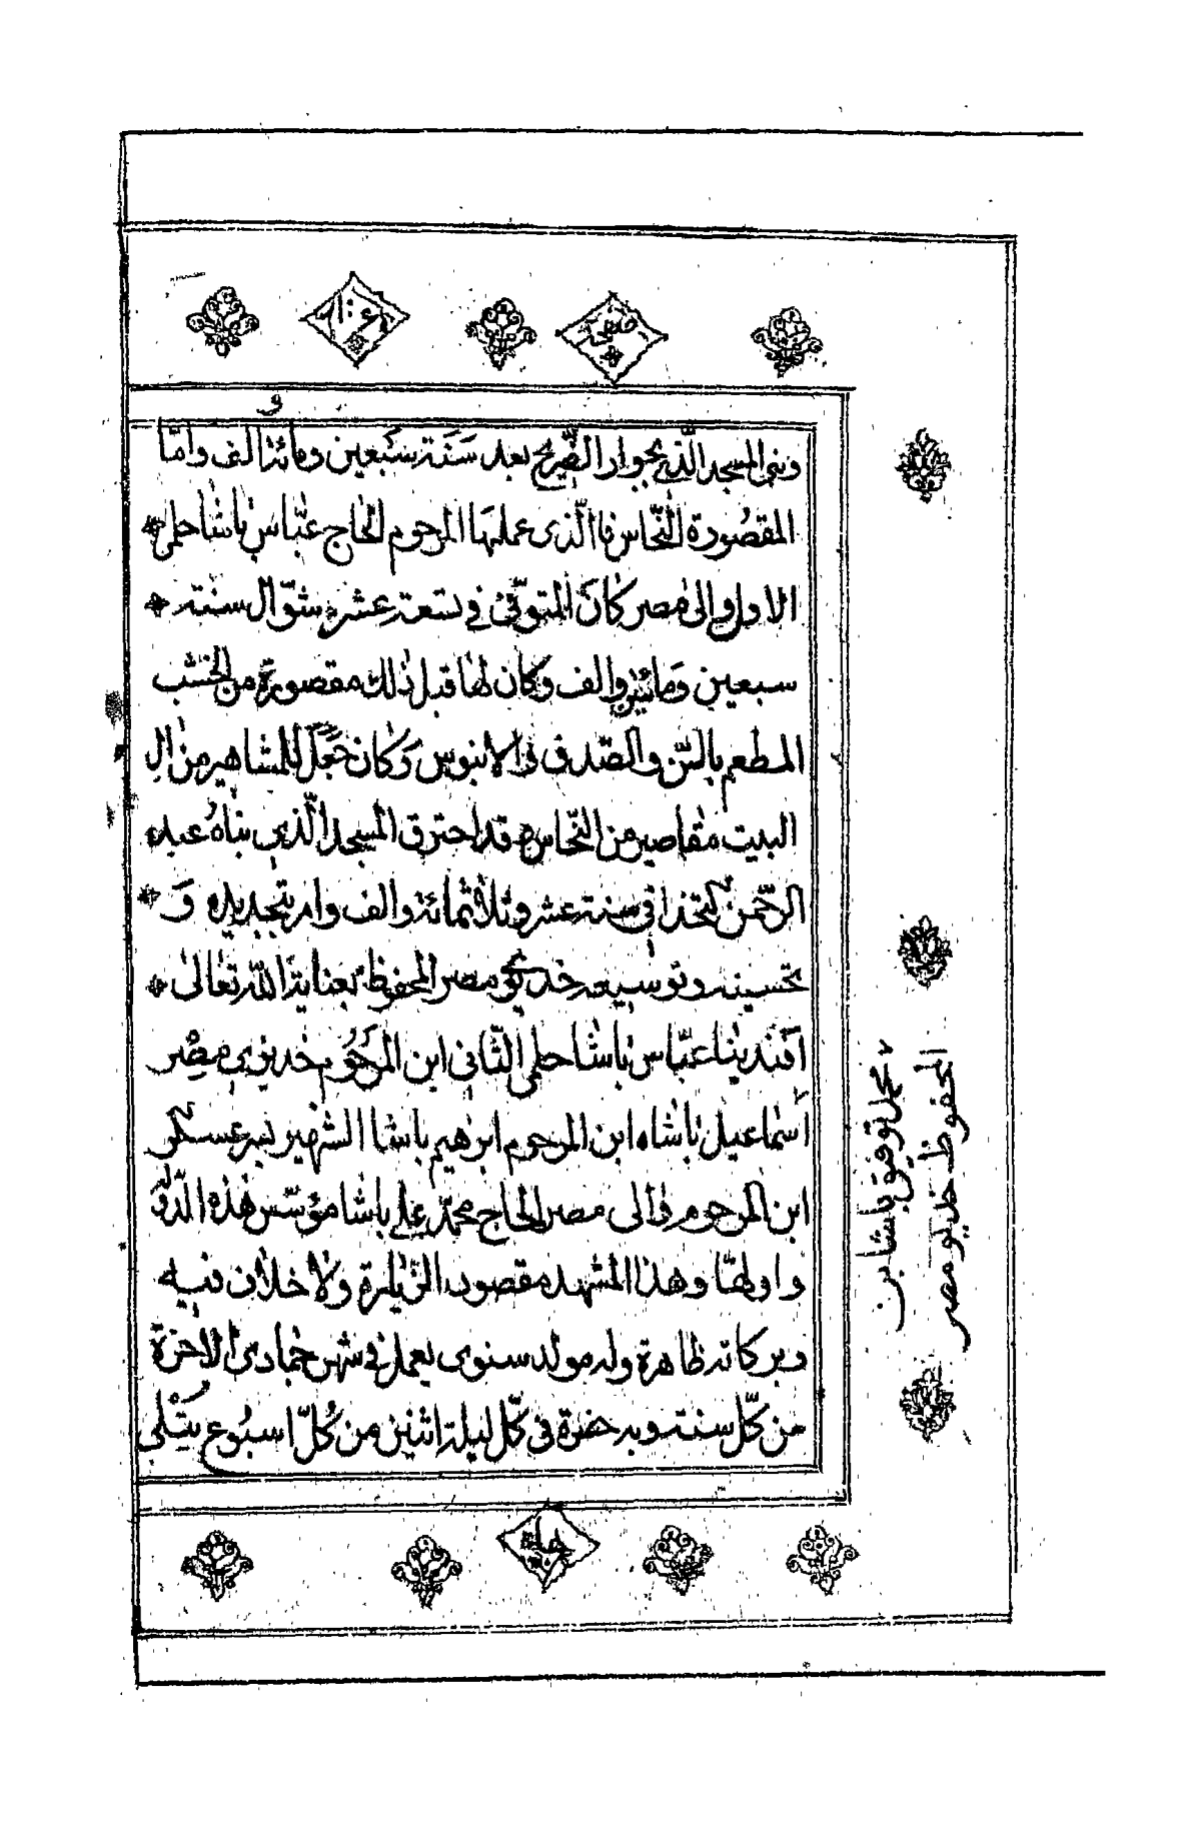 صحيفة
و
وبنى المسجد الّذي بجوار الضّريح بعد سَنَة سَبعين ومائة الف وامّا
المقصُورة النّحاس فالّذى عملها المرحوم الحاج عبّاس باشا حلمى
الاول والى مصر كانَ المتوفّى في تسعة عشر شوّال سنته
سبعين ومائتين والف وكان لها قبل ذلك مقصورة من الخشب
المطعم بالسّن والصّدف والابنوس وكان جعل للمشاهير من ال
البيت مقاصير من النّحاس وقد احترق المسجد الّذي بناهُ عبد
الرّحمن كتخدا في سنة عشر وثلاثمائة والف وامر بتجديده وَ
تحسينه وتوسيعه خديوي مصر المحفوظ بعناية اللّه تعالى
افندينا عبّاس باشا حلمى الثّانى ابن المرحُوم خديوي مصْر
اسماعيل باشاه ابن المرحوم ابرهيم باشا الشهير بسر عسكر
ابن المرحوم والى مصر الحاج محمّد على باشا مؤسّس هذه
واولها وهذا المشهد مقصود الزّيارة ولا خلاف فيه
وبركاته ظاهرة وله مولد سنوى يعمل في شهر جمادى الاخرة
من كلّ سنته وبه حضرة في كلّ ليلة اثنين من كُلّ اسبُوع يتلى
٧ محمد توفيق باشا بن
المحفوظ خديو مصر